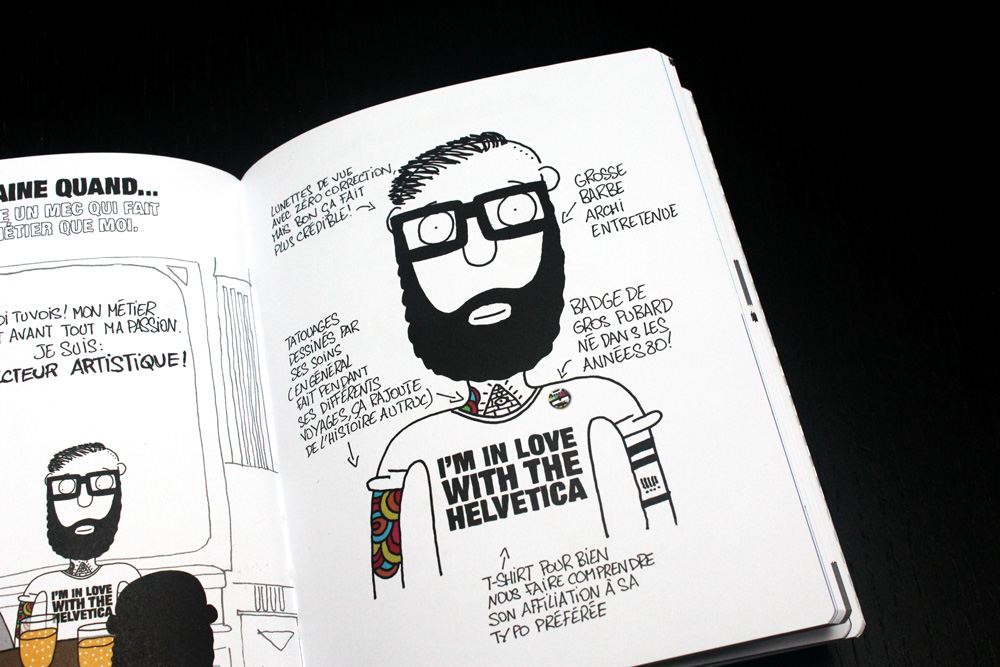 AINE QUAND...
E UN MEC QUI FAIT
MÉTIER QUE MOI.
OI TU VOIS! MON MÉTIER
T AVANT TOUT MA PASSION.
JE SUIS:
CTEUR ARTISTIQUE!
I'M IN LOVE
WITH THE
HELVETICA
LUNETTES DE VUE
AVEC ZÉRO CORRECTION,
MAIS BON ÇA FAIT
PLUS CRÉDIBLE!
GROSSE
BARBE
ARCHI
ENTRETENDE
TATOUAGES
DESSINÉS PAR
SES SOINS
(EN GÉNÉRAL
FAIT PENDANT
SES DIFFÉRENTS
VOYAGES, ÇA RAJOUTE
DE L'HISTOIRE AU TRUC)
BADGE DE
GROS PUBARD
NÉ DANS LES
ANNÉES 80!
I'M IN LOVE
WITH THE
HELVETICA
T-SHIRT POUR BIEN
NOUS FAIRE COMPRENDRE
SON AFFILIATION À SA
TYPO PRÉFÉRÉE